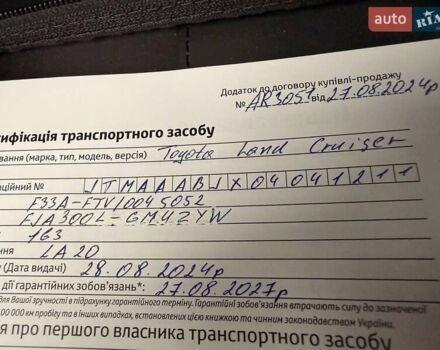 auto RIA
Додаток до договору купівлі-продажу
№ AR3051 від 27.08.2024р
тифікація транспортного засобу
вання (марка, тип, модель, версія) Toyota Land Cruiser
аційний № JTMAAABJX04041211
F33A-FTV/0045052
FJA300L-GMUZYW
1G3
ння LA20
у (Дата видачі) 28.08.2024р
дії гарантійних зобов'язань*: 27.08.2027р
для Вашої зручності в підрахунку гарантійного терміну. Гарантійні зобов'язання втрачають силу до зазначеної
00 000 км пробігу та в інших випадках, встановлених цією книжкою та чинним законодавством України.
я про першого власника транспортного засобу